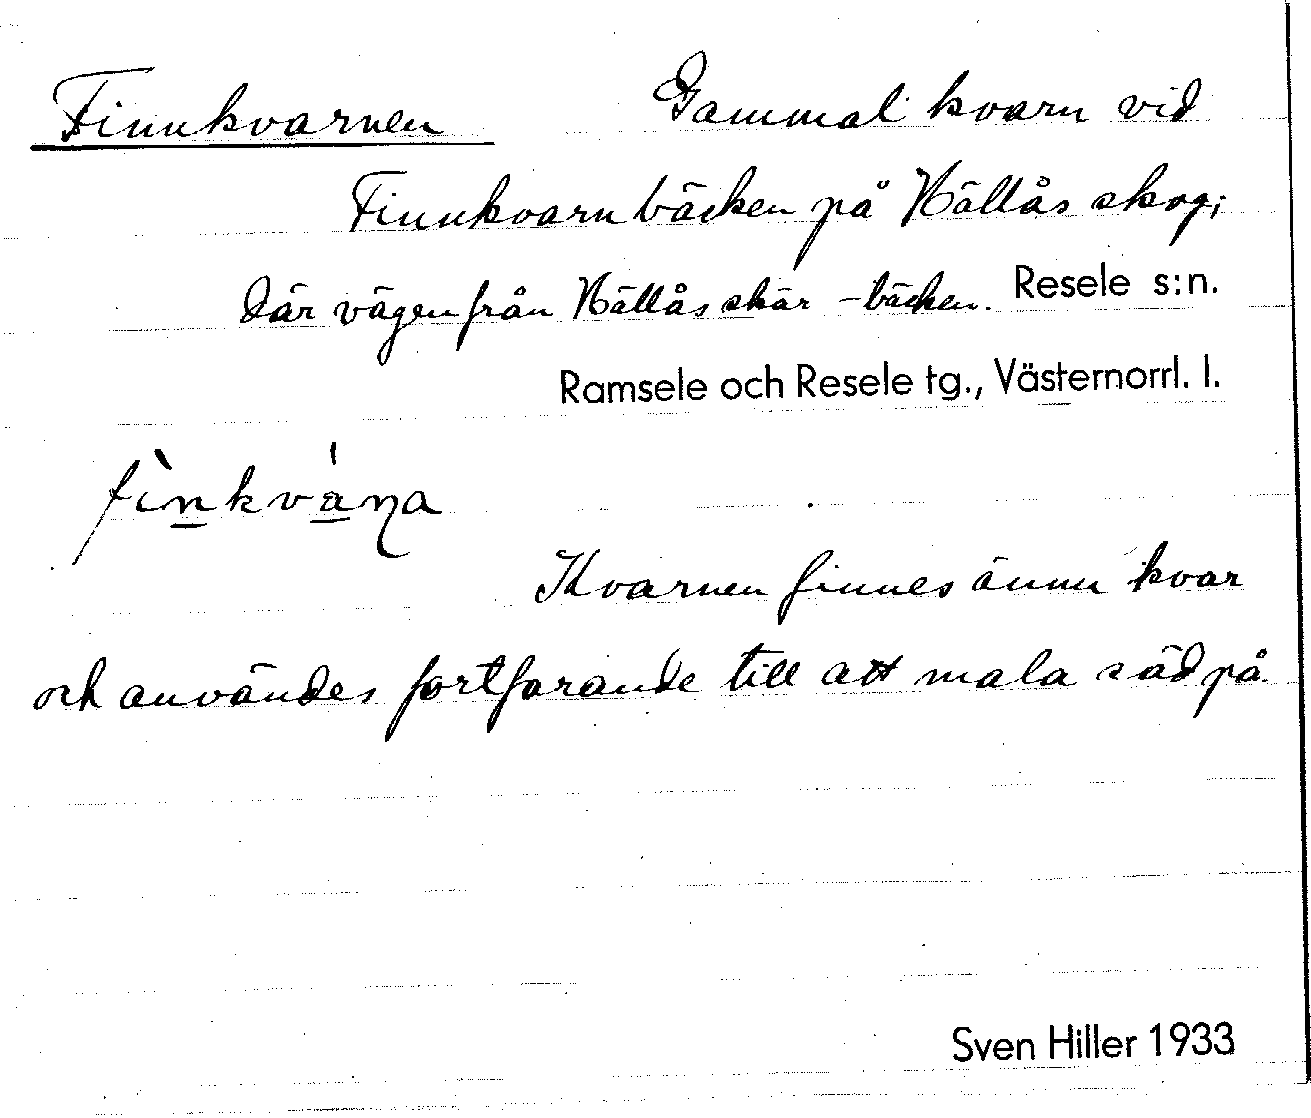 Finnkvarnen Gammal kvarn vid
Finnkvarnbäcken på Hällås skog;
där vägen från Hällås skär -bäcken. Resele s:n.
Ramsele och Resele tg., Västernorrl. l.
fìnkvá̱ɳa
Kvarnen finnes ännu kvar
och användes fortfarande till att mala säd på
Sven Hiller 1933